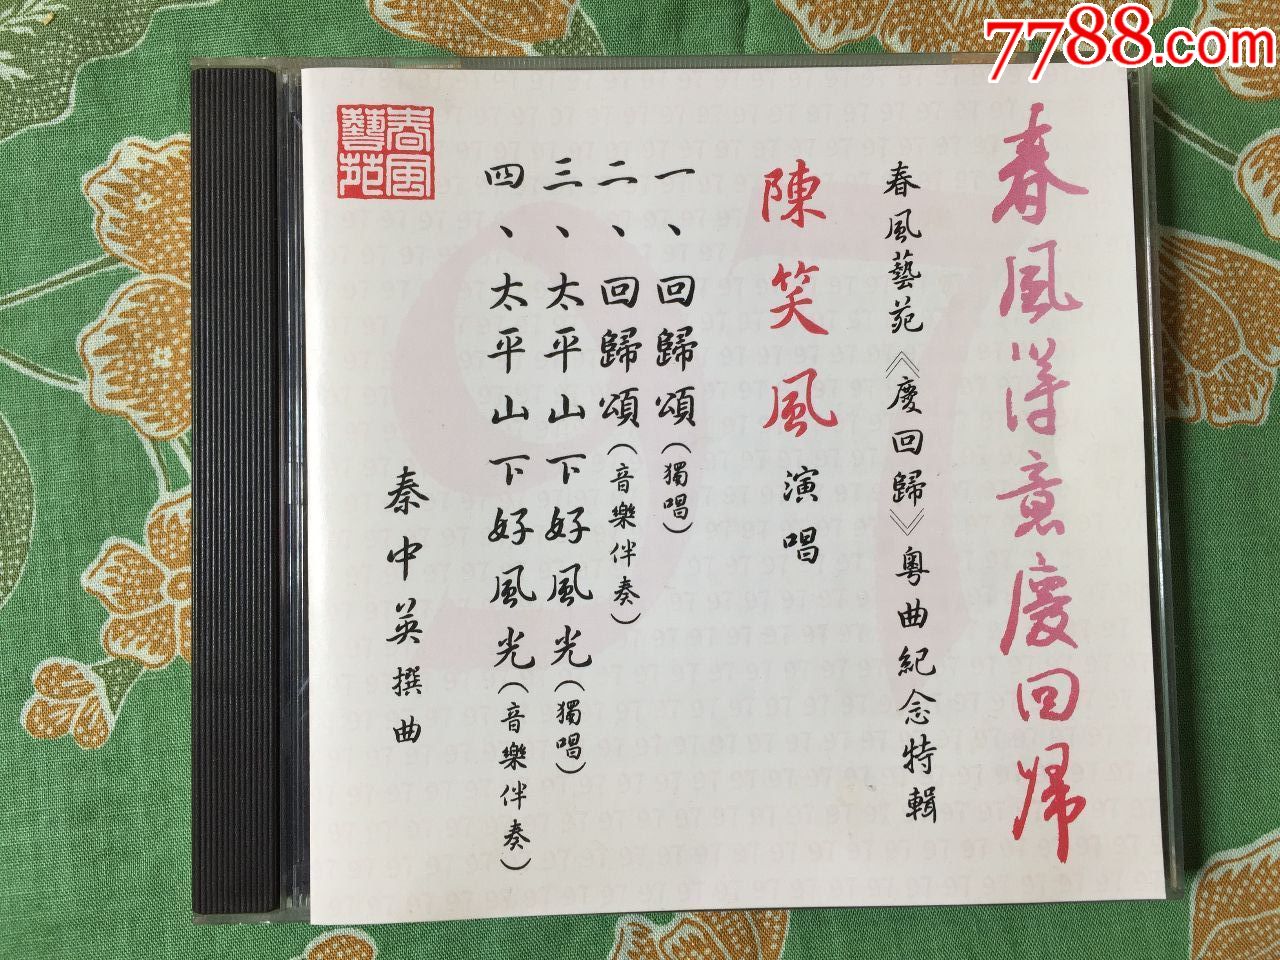 7788.com
春风得意慶回归
春風藝苑《慶回歸》粵曲紀念特輯
陳笑風演唱
一、回歸頌(獨唱)
二、回歸頌(音樂伴奏)
三、太平山下好風光(獨唱)
四、太平山下好風光(音樂伴奏)
秦中英撰曲
春風藝苑
97